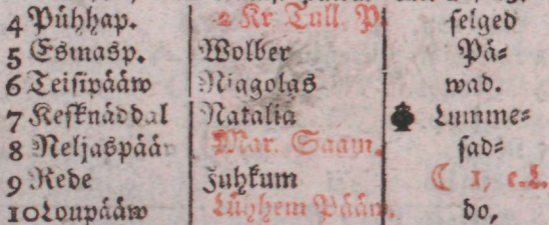 4 Pühhap. 2 Kr Tull. P. selged
5 Esmasp. Wolber Pä=
6 Teisipääw Niagolas wad.
7 Kesknäddal Natalia Lumme=
8 Neljaspääw Mar. Saam. sad=
9 Rede Juhkum ☾ 1, e.L.
10 Loupääw Lühhem Pääw. do,